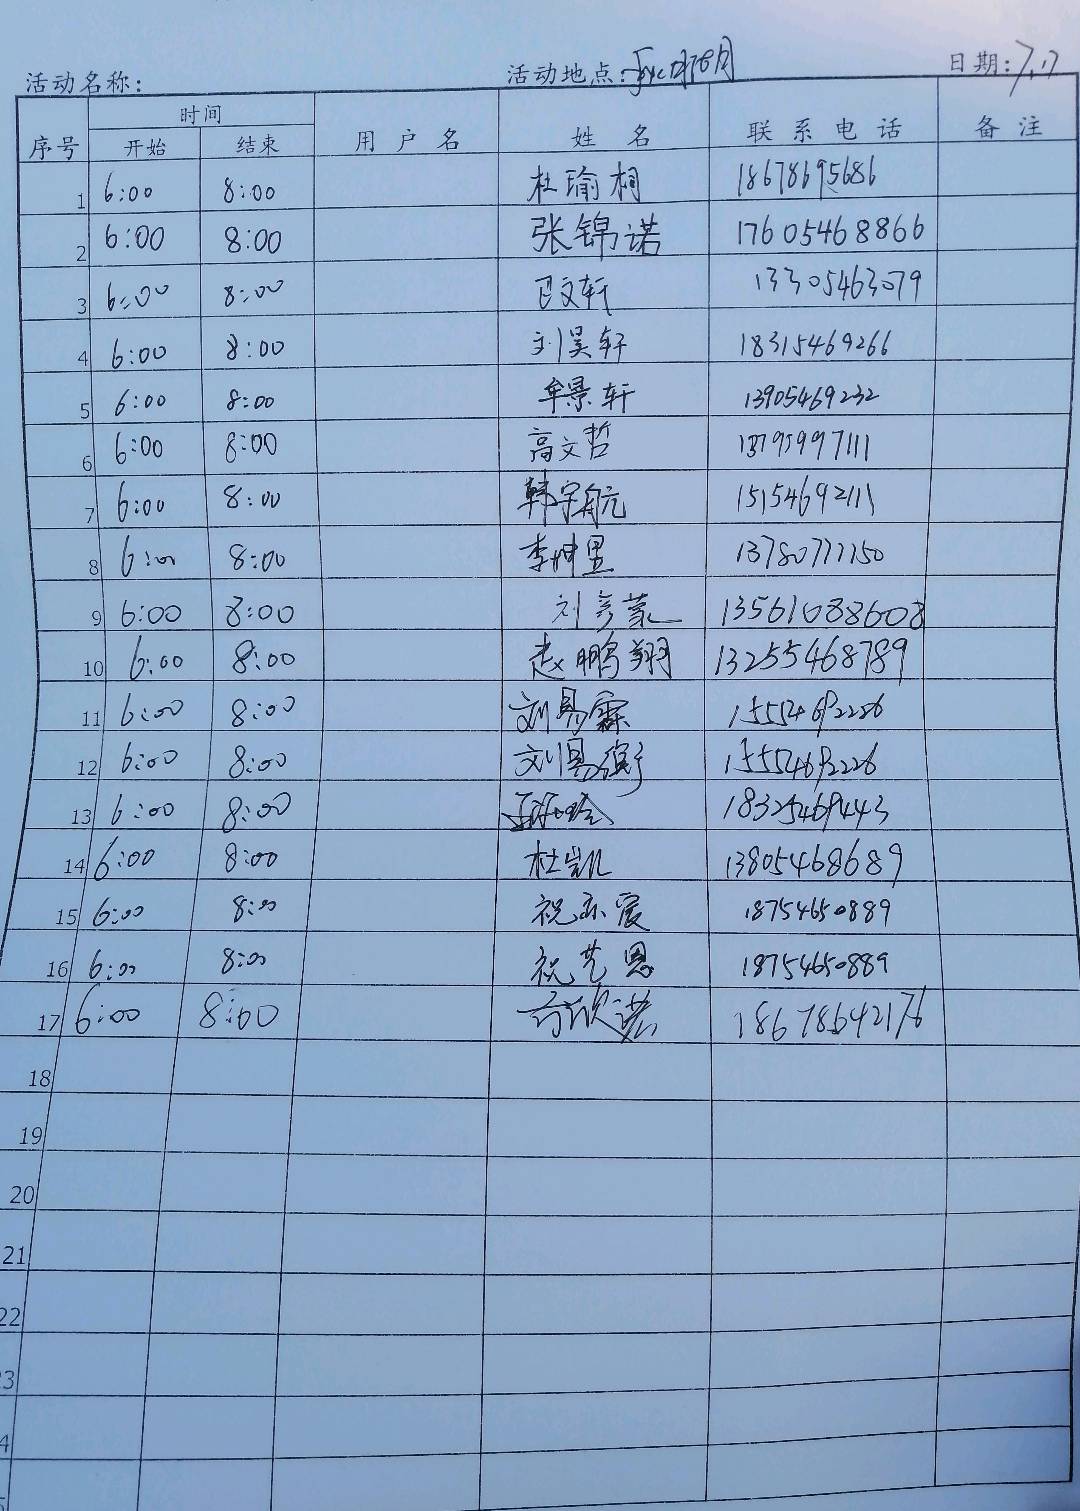 活动名称: 活动地点: 日期:7.17
时间
序号 开始 结束 用户名 姓名 联系电话 备注
1 6:00 8:00 杜瑜桐 18678695686
2 6:00 8:00 张锦诺 17605468866
3 6:00 8:00 文轩 13305463079
4 6:00 8:00 刘昊轩 18315469266
5 6:00 8:00 牟景轩 13905469232
6 6:00 8:00 高文哲 13795997111
7 6:00 8:00 韩宇航 15154692111
8 6:00 8:00 李坤 13780777150
9 6:00 8:00 刘彦蒙 13561088608
10 6:00 8:00 赵鹏翔 13255468789
11 6:00 8:00 刘易霖 15554692226
12 6:00 8:00 刘易衡 15554692226
13 6:00 8:00 18325469443
14 6:00 8:00 杜凯 13805468689
15 6:00 8:00 祝 18754650889
16 6:00 8:00 祝艺恩 18754650889
17 6:00 8:00 18678642176
18
19
20
21
22